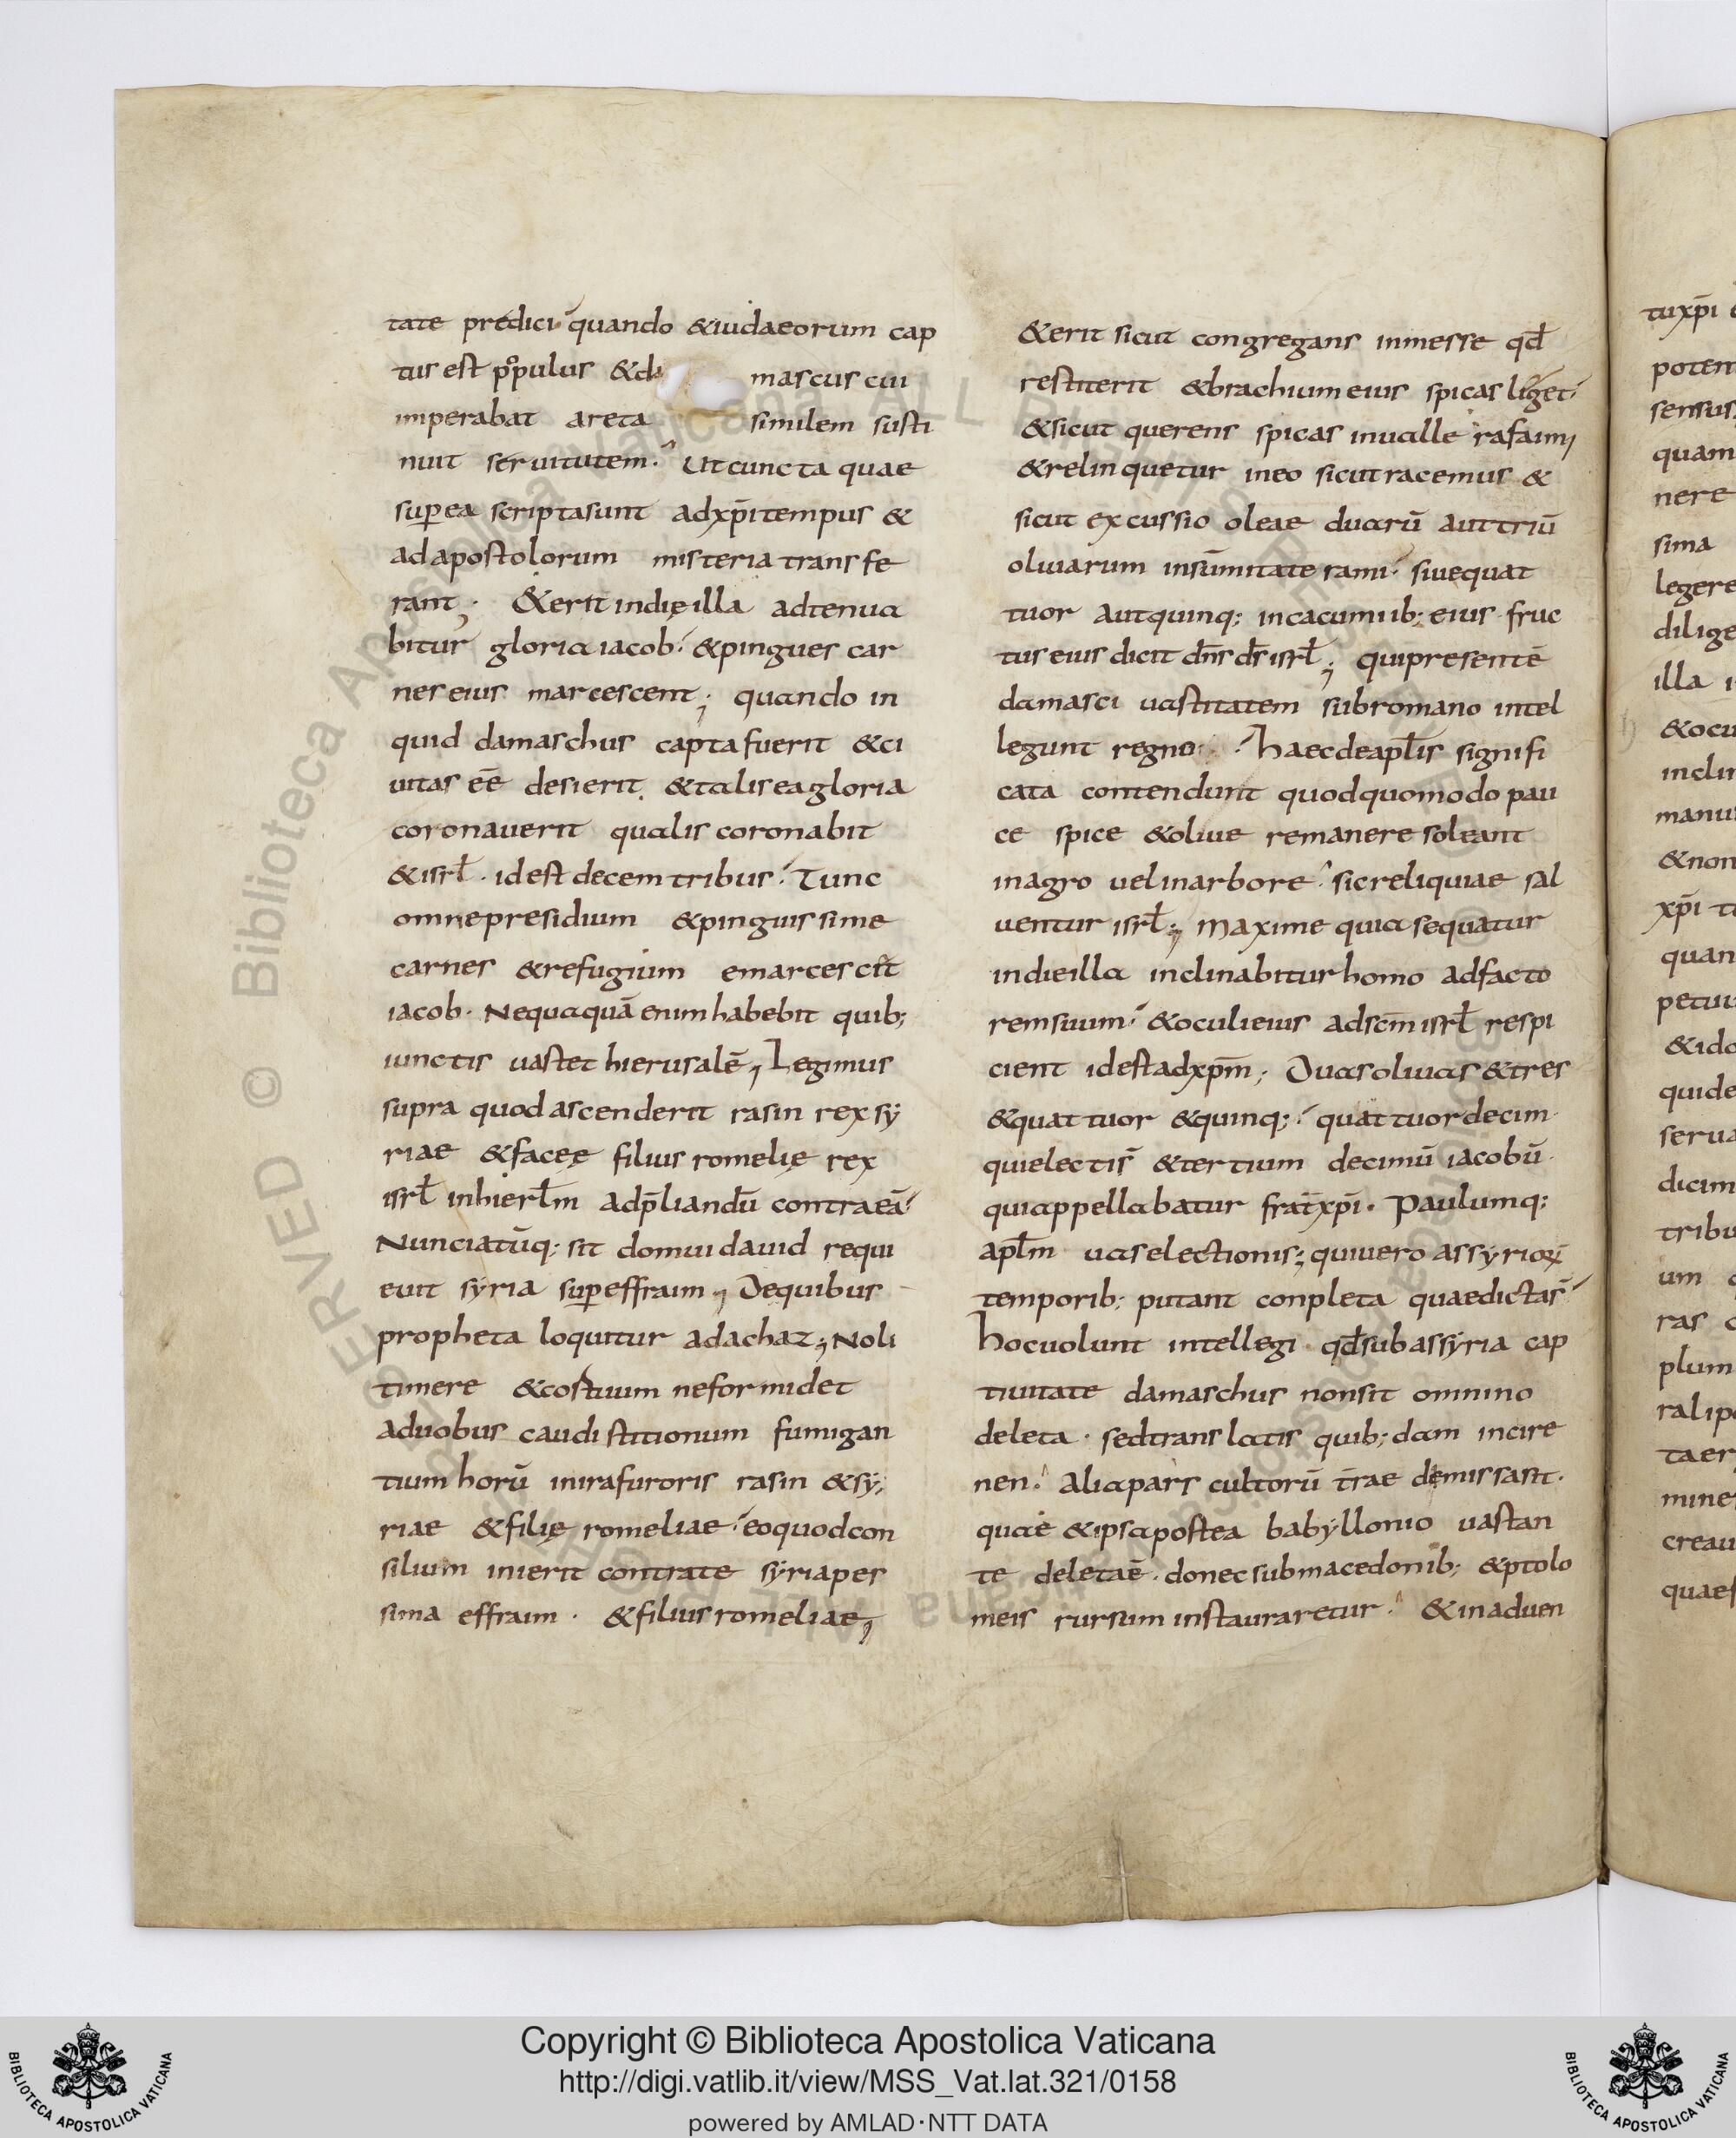 tate predici quando &iudaeorum cap
tus est populus &da mascus cui
imperabat areta similem susti
nuit seruitutem. Ut cuncta quae
sup ea scripta sunt ad xp̄i tempus &
ad apostolorum misteria transfe
rant; &erit in dię illa adtenua
bitur gloria iacob. &pingues car
nes eius marcescent; quando in
quid damaschus capta fuerit &ci
uitas eē desierit. &talis ea gloria
coronauerit qualis coronabit
&isrl̄. id est decem tribus. Tunc
omne presidium &pinguissime
carnes &refugium emarcescit
iacob. Nequaquā enim habebit quib;
iunctis uastet hierusalē; Legimus
supra quod ascenderit rasin rex sy
riae &faceę filius romelię rex
isrl̄ in hierl̄m ad p̄liandū contra eā.
Nunciatūq; sit domui dauid requi
euit syria sup effraim; De quibus
propheta loquitur ad achaz; Noli
timere &cos tuum ne formidet
a duobus caudis titionum fumigan
tium horū in ira furoris rasin &sy
riae &filię romeliae. eo quod con
silium inierit contra te syria pes
sima effraim. &filius romeliae;
&erit sicut congregans in messe qd̄
restiterit &brachium eius spicas liget.
&sicut querens spicas in ualle rafaim;
&relinquetur in eo sicut racemus &
sicut excussio oleae duarū aut triū
oliuarum in sūmitate rami. siue quat
tuor aut quinq; in cacumiib; eius fruc
tus eius dicit dn̄s ds̄ isrl̄; qui presentē
damasci uastitatem sub romano intel
legunt regno. haec de apl̄is signifi
cata contendunt quod quomodo pau
ce spice &oliue remanere soleant
in agro uel in arbore. sic reliquiae sal
uentur isrl̄; Maxime quia sequatur
in die illa inclinabitur homo ad facto
rem suum. &oculi eius ad sc̄m isrl̄ respi
cient id est ad xp̄m; Duas oliuas &tres
&quattuor &quinq;. quattuordecim
qui electis &tertium decimū iacobū.
qui appellabatur frat̄ xp̄i. Paulumq;
apl̄m uas electionis; qui uero assyrioꝝ
temporib; putant conpleta quae dicta s̄
hoc uolunt intellegi qd̄ sub assyria cap
tiuitate damaschus non sit omnino
deleta. sed translatis quib;dam in cire
nen. Alia pars cultorū t̄rae demissa st̄.
quae &ipsa postea babyllonio uastan
te deleta ē. donec sub macedonib; &ptolo
meis rursum instauraretur. &in aduen
tu xp̄i
poten
sensus
quam
nere
sima
legere
dilige
illa
&ocu
inclin
manu
&non
xp̄i
quan
petui
&ido
quide
serua
dicim
tribu
um
ras
plum
ralip
ta er
mine
creau
quae
© Biblioteca Apostolica Vaticana ALL RIGHTS RESERVED
BIBLIOTECA APOSTOLICA VATICANA
Copyright © Biblioteca Apostolica Vaticana
http://digi.vatlib.it/view/MSS_Vat.lat.321/0158
powered by AMLAD·NTT DATA
BIBLIOTECA APOSTOLICA VATICANA